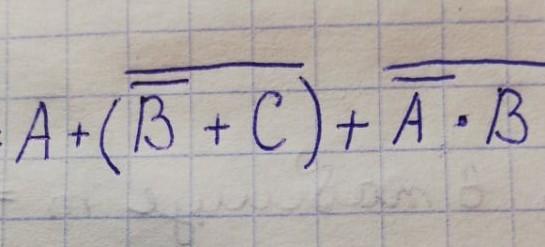 A + (B̿ + C̅) + A̿ · B̅